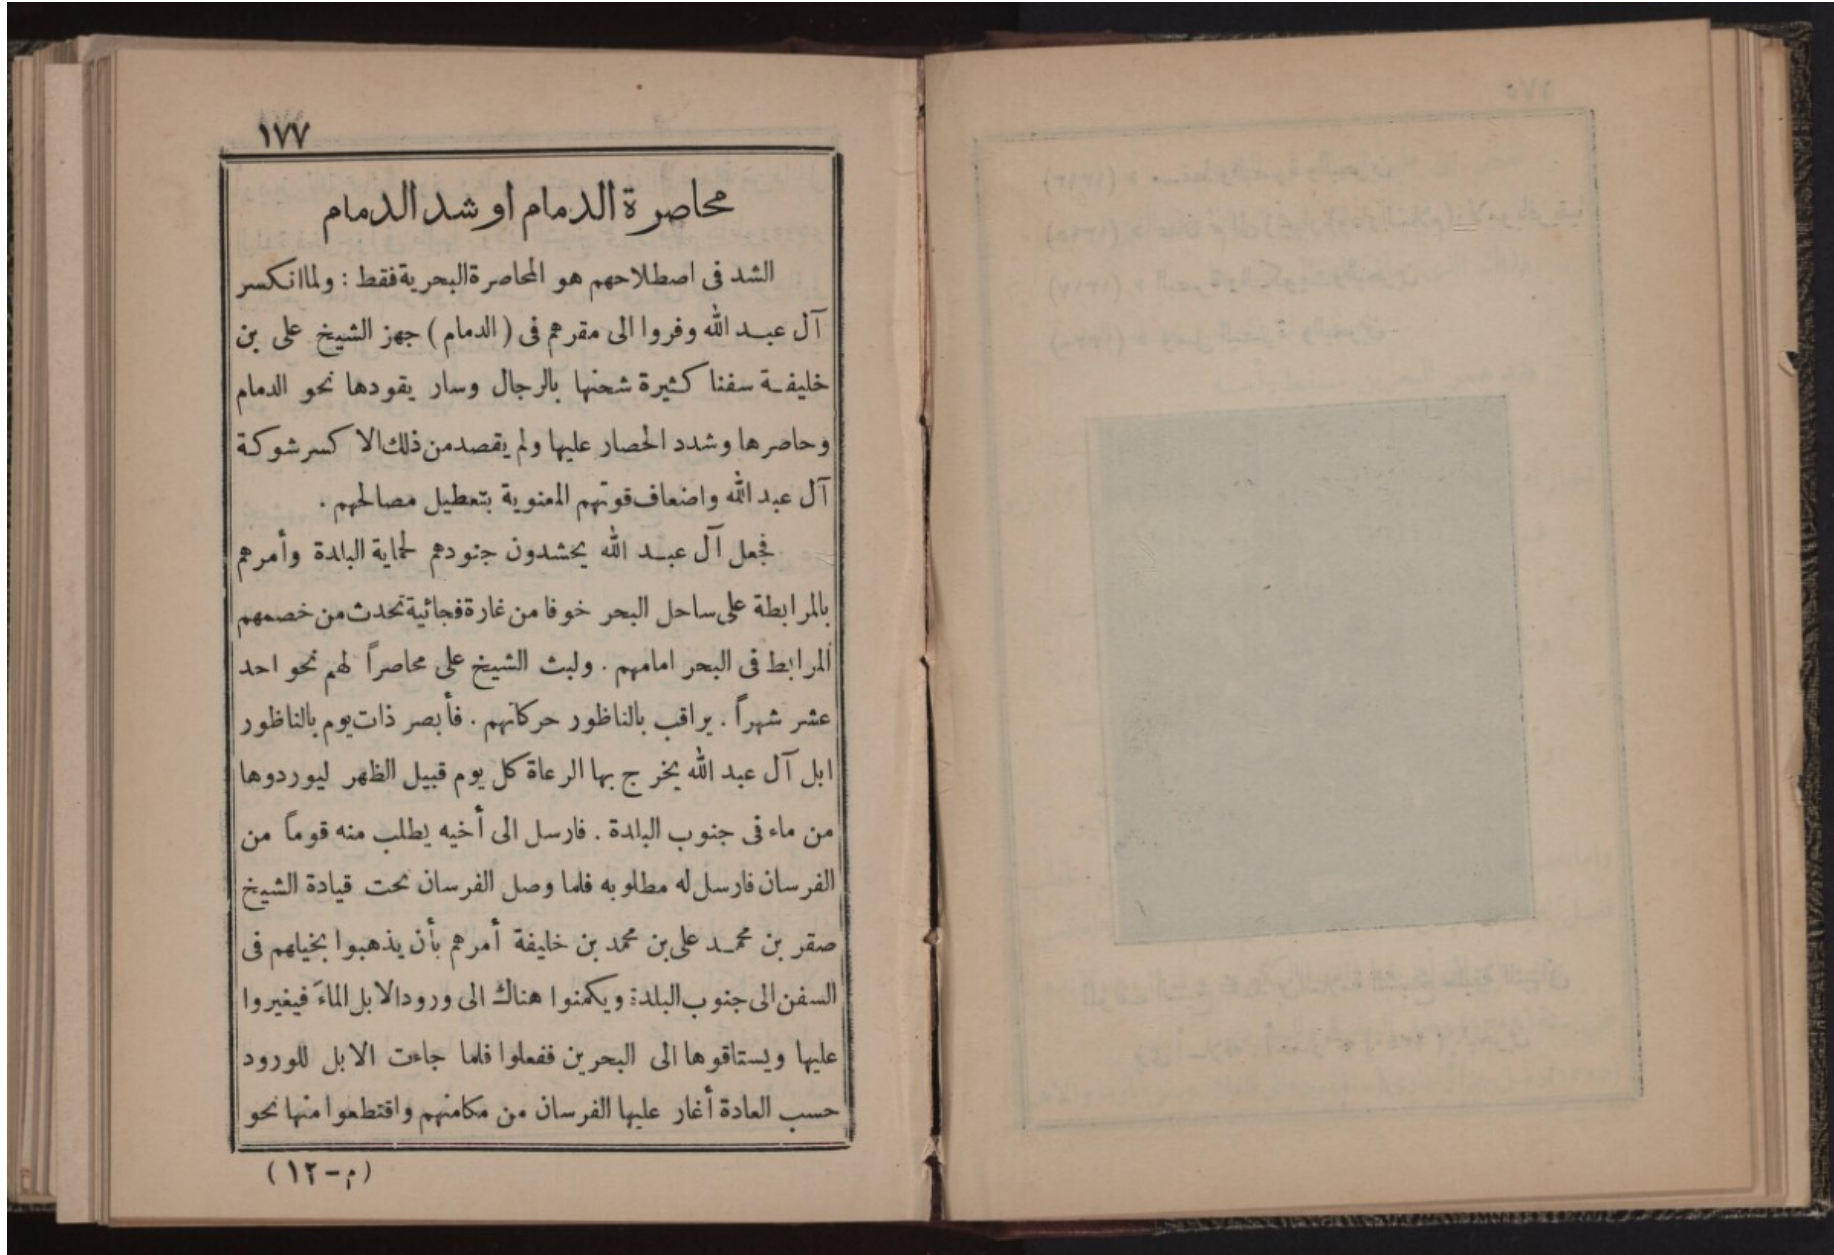 ١٧٧
محاصرة الدمام او شد الدمام
الشد فى اصطلاحهم هو المحاصرة البحرية فقط : ولما انكسر
آل عبد الله وفروا الى مقرهم فى ( الدمام ) جهز الشيخ على بن
خليفة سفنا كثيرة شحنها بالرجال وسار يقودها نحو الدمام
وحاصرها وشدد الحصار عليها ولم يقصد من ذلك الا كسر شوكة
آل عبد الله واضعاف قوتهم المعنوية بتعطيل مصالحهم .
فجعل آل عبد الله يحشدون جنودهم لحماية البلدة وأمرهم
بالمرابطة على ساحل البحر خوفا من غارة فجائية تحدث من خصمهم
المرابط فى البحر امامهم . ولبث الشيخ على محاصراً لهم نحو احد
عشر شهراً . يراقب بالناظور حركاتهم . فأبصر ذات يوم بالناظور
ابل آل عبد الله يخرج بها الرعاة كل يوم قبيل الظهر ليوردوها
من ماء فى جنوب البلدة . فارسل الى أخيه يطلب منه قوماً من
الفرسان فارسل له مطلوبه فلما وصل الفرسان تحت قيادة الشيخ
صقر بن محمد على بن محمد بن خليفة أمرهم بأن يذهبوا بخيلهم فى
السفن الى جنوب البلدة ويكمنوا هناك الى ورود الابل الماءَ فيغيروا
عليها ويستاقوها الى البحرين ففعلوا فلما جاءت الابل للورود
حسب العادة أغار عليها الفرسان من مكامنهم واقتطعوا منها نحو
(م – ١٢)